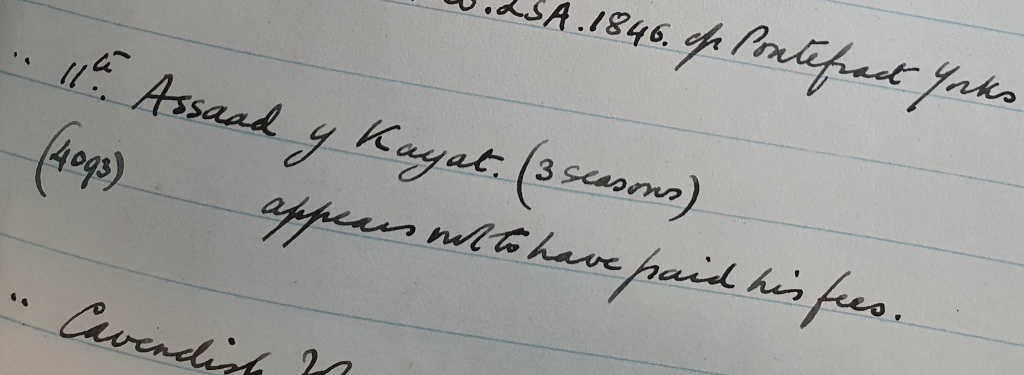 .LSA.1846. of Pontefract Yorks
.. 11th. Assaad y Kayat. (3 seasons)
(40gs) appears not to have paid his fees.
.. Cavendish